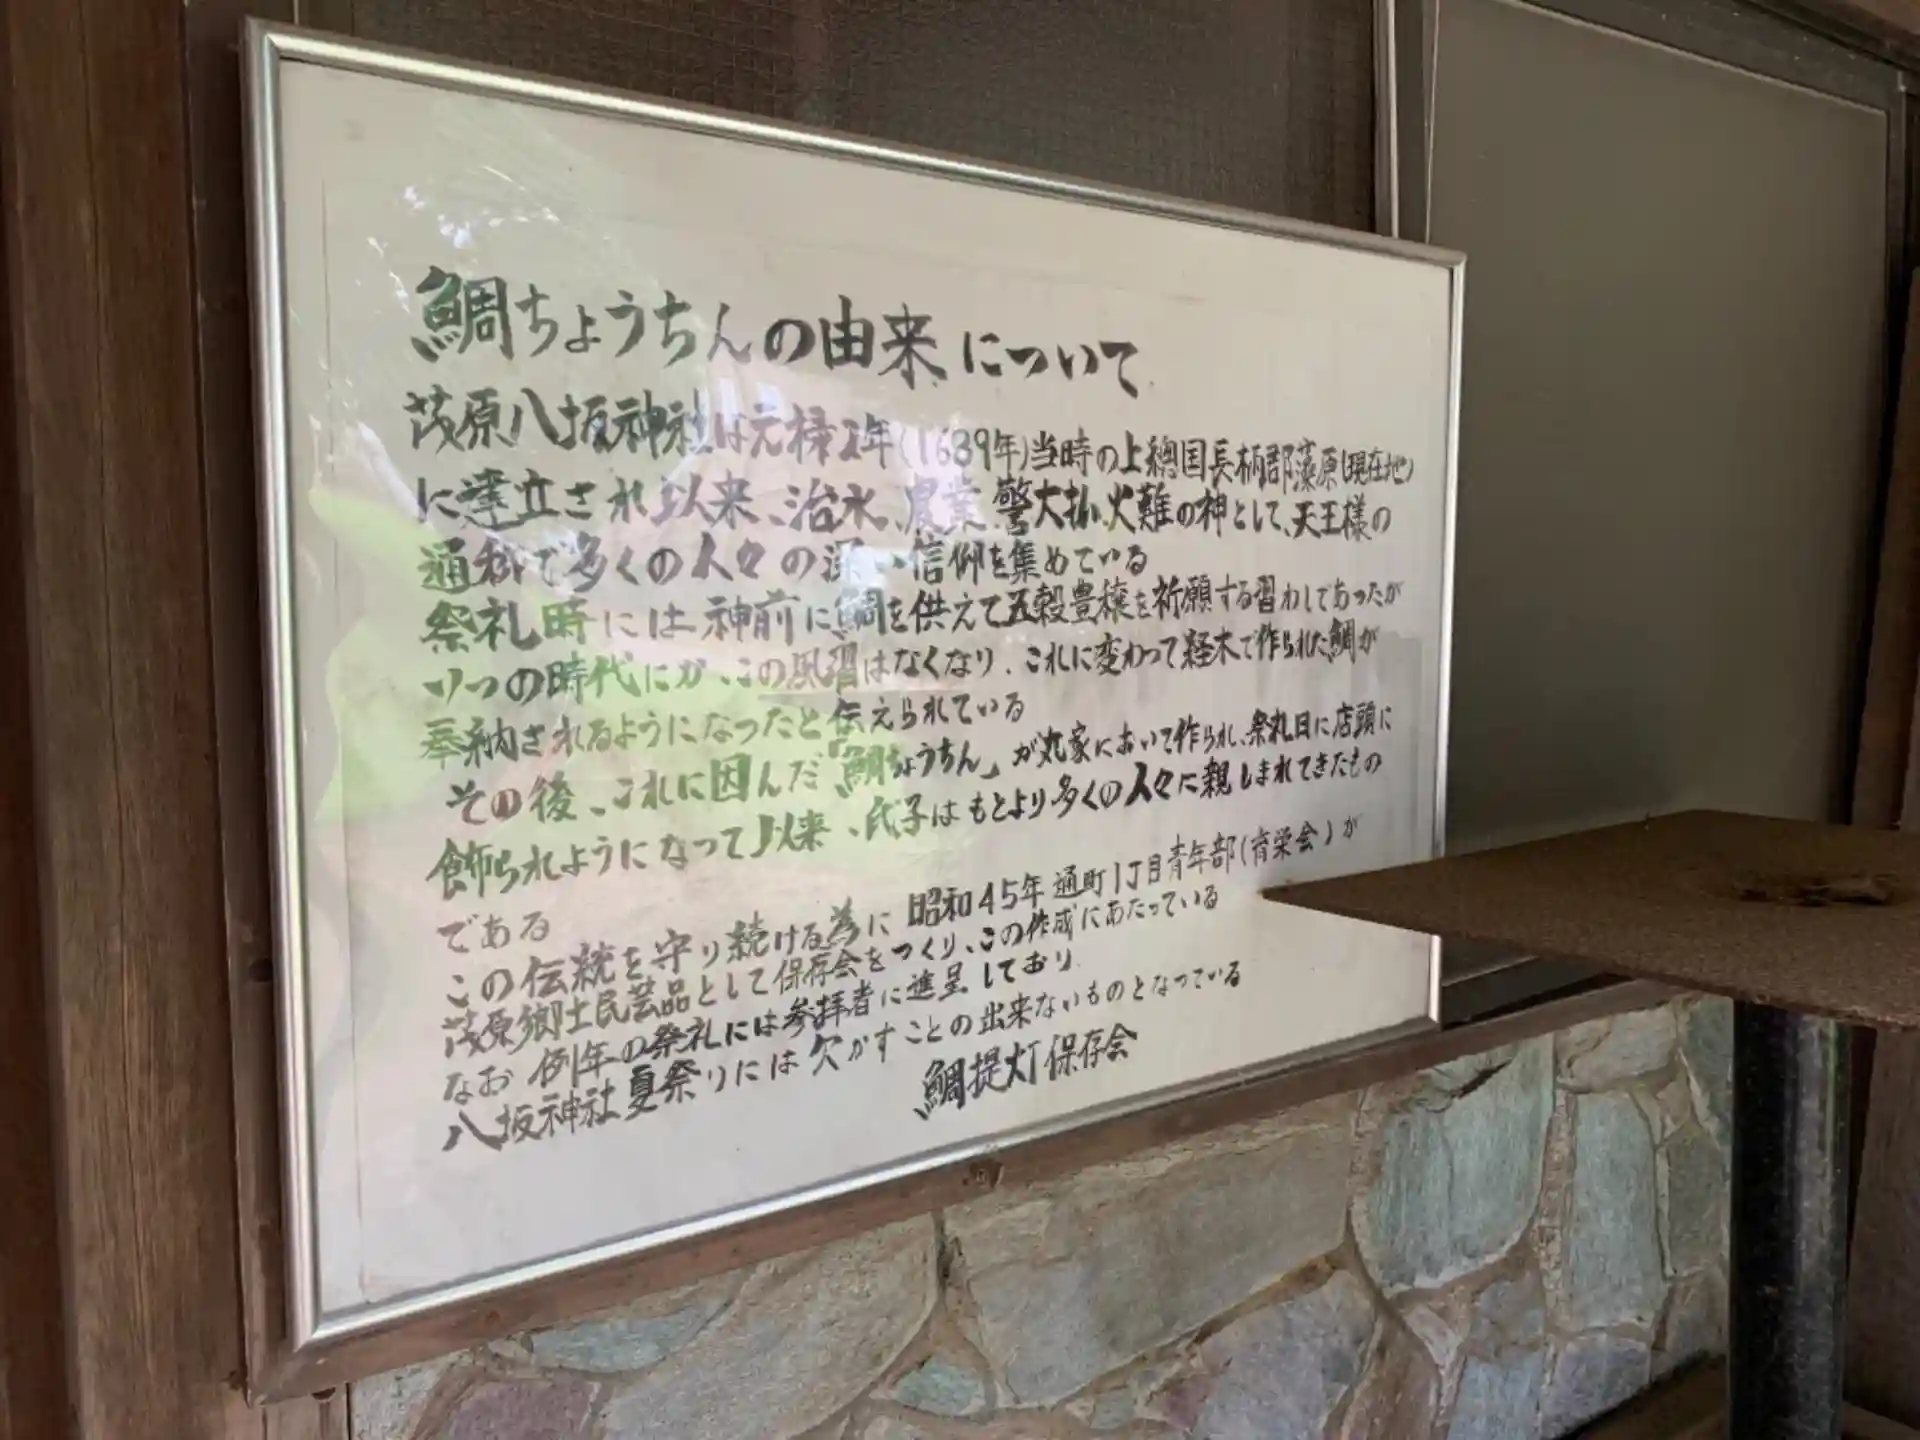 鯛ちょうちんの由来について
茂原八坂神社は元禄2年(1689年)当時の上總国長柄郡藻原(現在地)
に建立され以来、治水、農業、警大払、火難の神として、天王様の
通称で多くの人々の深い信仰を集めている
祭礼時には神前に鯛を供えて五穀豊穣を祈願する習わしであったが
いつの時代にか、この風習はなくなり、これに変わって経木で作られた鯛が
奉納されるようになったと伝えられている
その後、これに因んだ「鯛ちょうちん」が丸家において作られ、祭礼日に店頭に
飾られれようになって以来、氏子はもとより多くの人々に親しまれてきたもの
である
この伝統を守り続ける為に 昭和45年通町1丁目青年部(育栄会)が
茂原郷土民芸品として保存会をつくり、この作成にあたっている
なお 例年の祭礼には参拝者に進呈しており
八坂神社夏祭りには欠かすことの出来ないものとなっている
鯛提灯保存会